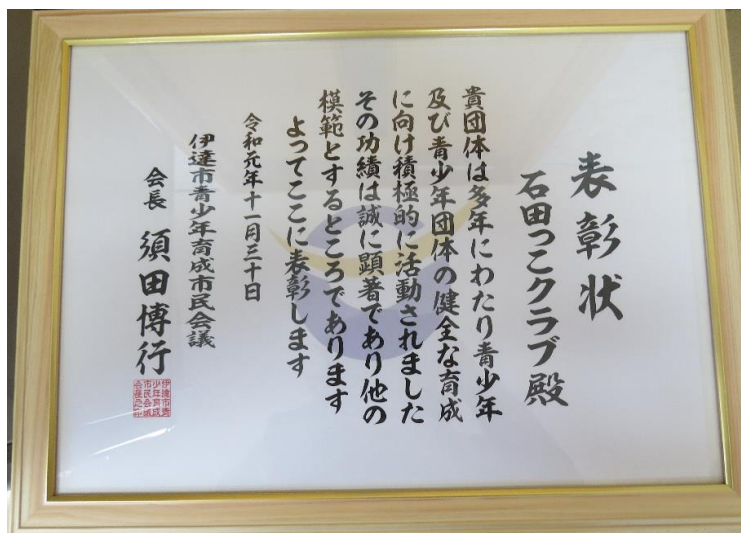 表彰状
石田っこクラブ殿
貴団体は多年にわたり青少年
及び青少年団体の健全な育成
に向け積極的に活動されました
その功績は誠に顕著であり他の
模範とするところであります
よってここに表彰します
令和元年十一月三十日
伊達市青少年育成市民会議
会長 須田博行
伊達市青
少年育成
市民会議
会長之印